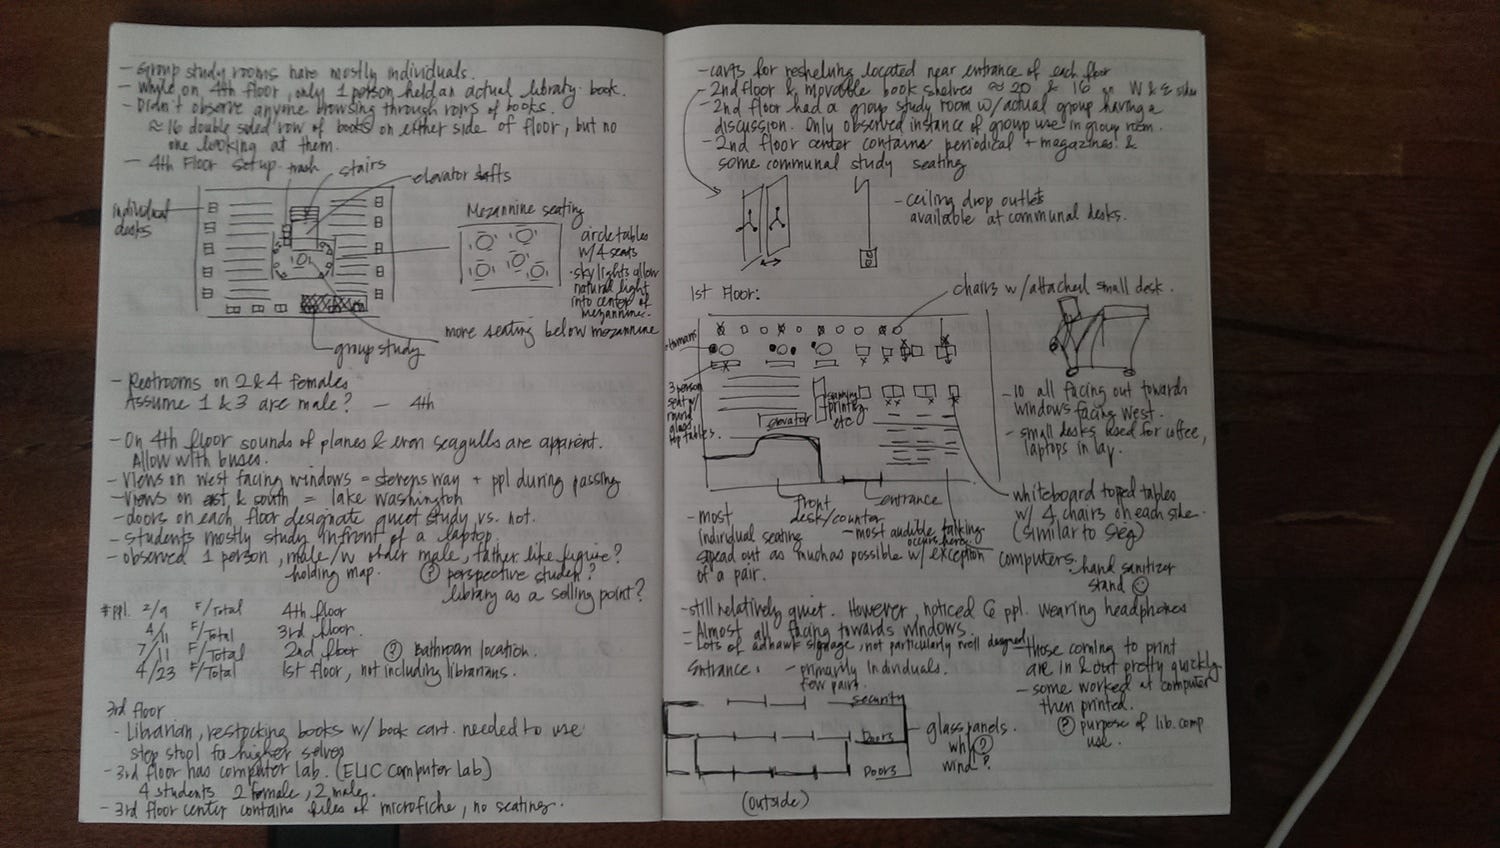 - Group study rooms have mostly individuals.
- While on 4th floor, only 1 person held an actual library book.
- Didn't observe anyone browsing through rows of books.
≈ 16 double sided row of books on either side of floor, but no
one looking at them.
- 4th Floor Setup
trash
stairs
elevator
individual
desks
Mezannine seating
circle tables
w/ 4 seats
- sky lights allow
natural light
into center of
mezannine.
more seating below mezannine
group study
- Restrooms on 2 & 4 females
Assume 1 & 3 are male? - 4th
- On 4th floor sounds of planes & even seagulls are apparent.
Allow with buses.
- Views on west facing windows = stevens way + ppl during passing
- Views on east & south = lake washington
- doors on each floor designate quiet study vs. not.
- students mostly study infront of a laptop.
- observed 1 person, male/w older male, father like figure?
holding map. ? perspective student?
library as a selling point?
# ppl. 2/9 F/Total 4th floor
4/11 F/Total 3rd floor.
7/11 F/Total 2nd floor ? bathroom location.
4/23 F/Total 1st floor, not including librarians.
3rd floor
- Librarian, restocking books w/ book cart. needed to use
step stool for higher selves
- 3rd floor has computer lab. (ELIC Computer lab)
4 students 2 female, 2 male.
- 3rd floor center contains files of microfiche, no seating.
- carts for reshelving located near entrance of each floor
- 2nd floor & movable book shelves ≈ 20 & 16 on W & E sides
- 2nd floor had a group study room w/ actual group having a
discussion. Only observed instance of group use in group room.
- 2nd floor center contains periodical + magazines &
some communal study seating
- ceiling drop outlets
available at communal desks.
1st Floor:
chairs w/ attached small desk.
3 person
seat w/
round
glass
top tables.
elevator
scanning
printing
etc
front
desk/counter
entrance
- 10 all facing out towards
windows facing West.
- small desks used for coffee,
laptops in lap.
whiteboard topped tables
w/ 4 chairs on each side.
(similar to Sieg)
- most
individual seating
spead out as much as possible w/ exception
of a pair.
- most audible talking
occurs here.
computers.
hand sanitizer
stand
- still relatively quiet. However, noticed 6 ppl. wearing headphones
- Almost all facing towards windows.
- Lots of adhawk signage, not particularly well designed
Entrance: - primarily individuals.
few pairs.
those coming to print
are in & out pretty quickly
- some worked at computer
then printed.
? purpose of lib. comp
use.
security
Doors
Doors
glass panels.
why ?
wind?
(outside)